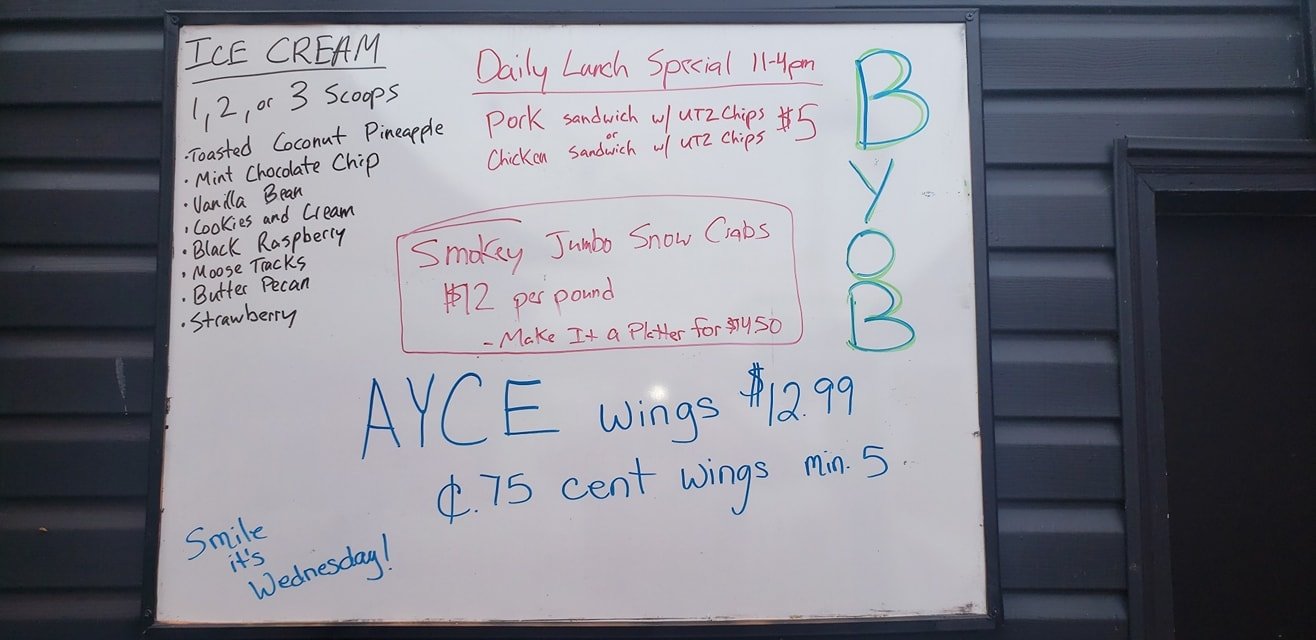 ICE CREAM
1, 2, or 3 Scoops
·Toasted Coconut Pineapple
·Mint Chocolate Chip
·Vanilla Bean
·Cookies and Cream
·Black Raspberry
·Moose Tracks
·Butter Pecan
·Strawberry
Daily Lunch Special 11-4pm
Pork sandwich w/ UTZ Chips $5
or
Chicken sandwich w/ UTZ Chips
Smokey Jumbo Snow Crabs
$12 per pound
- Make It a Platter for $1450
B
Y
O
B
AYCE wings $12.99
¢.75 cent wings min. 5
Smile
it's
Wednesday!